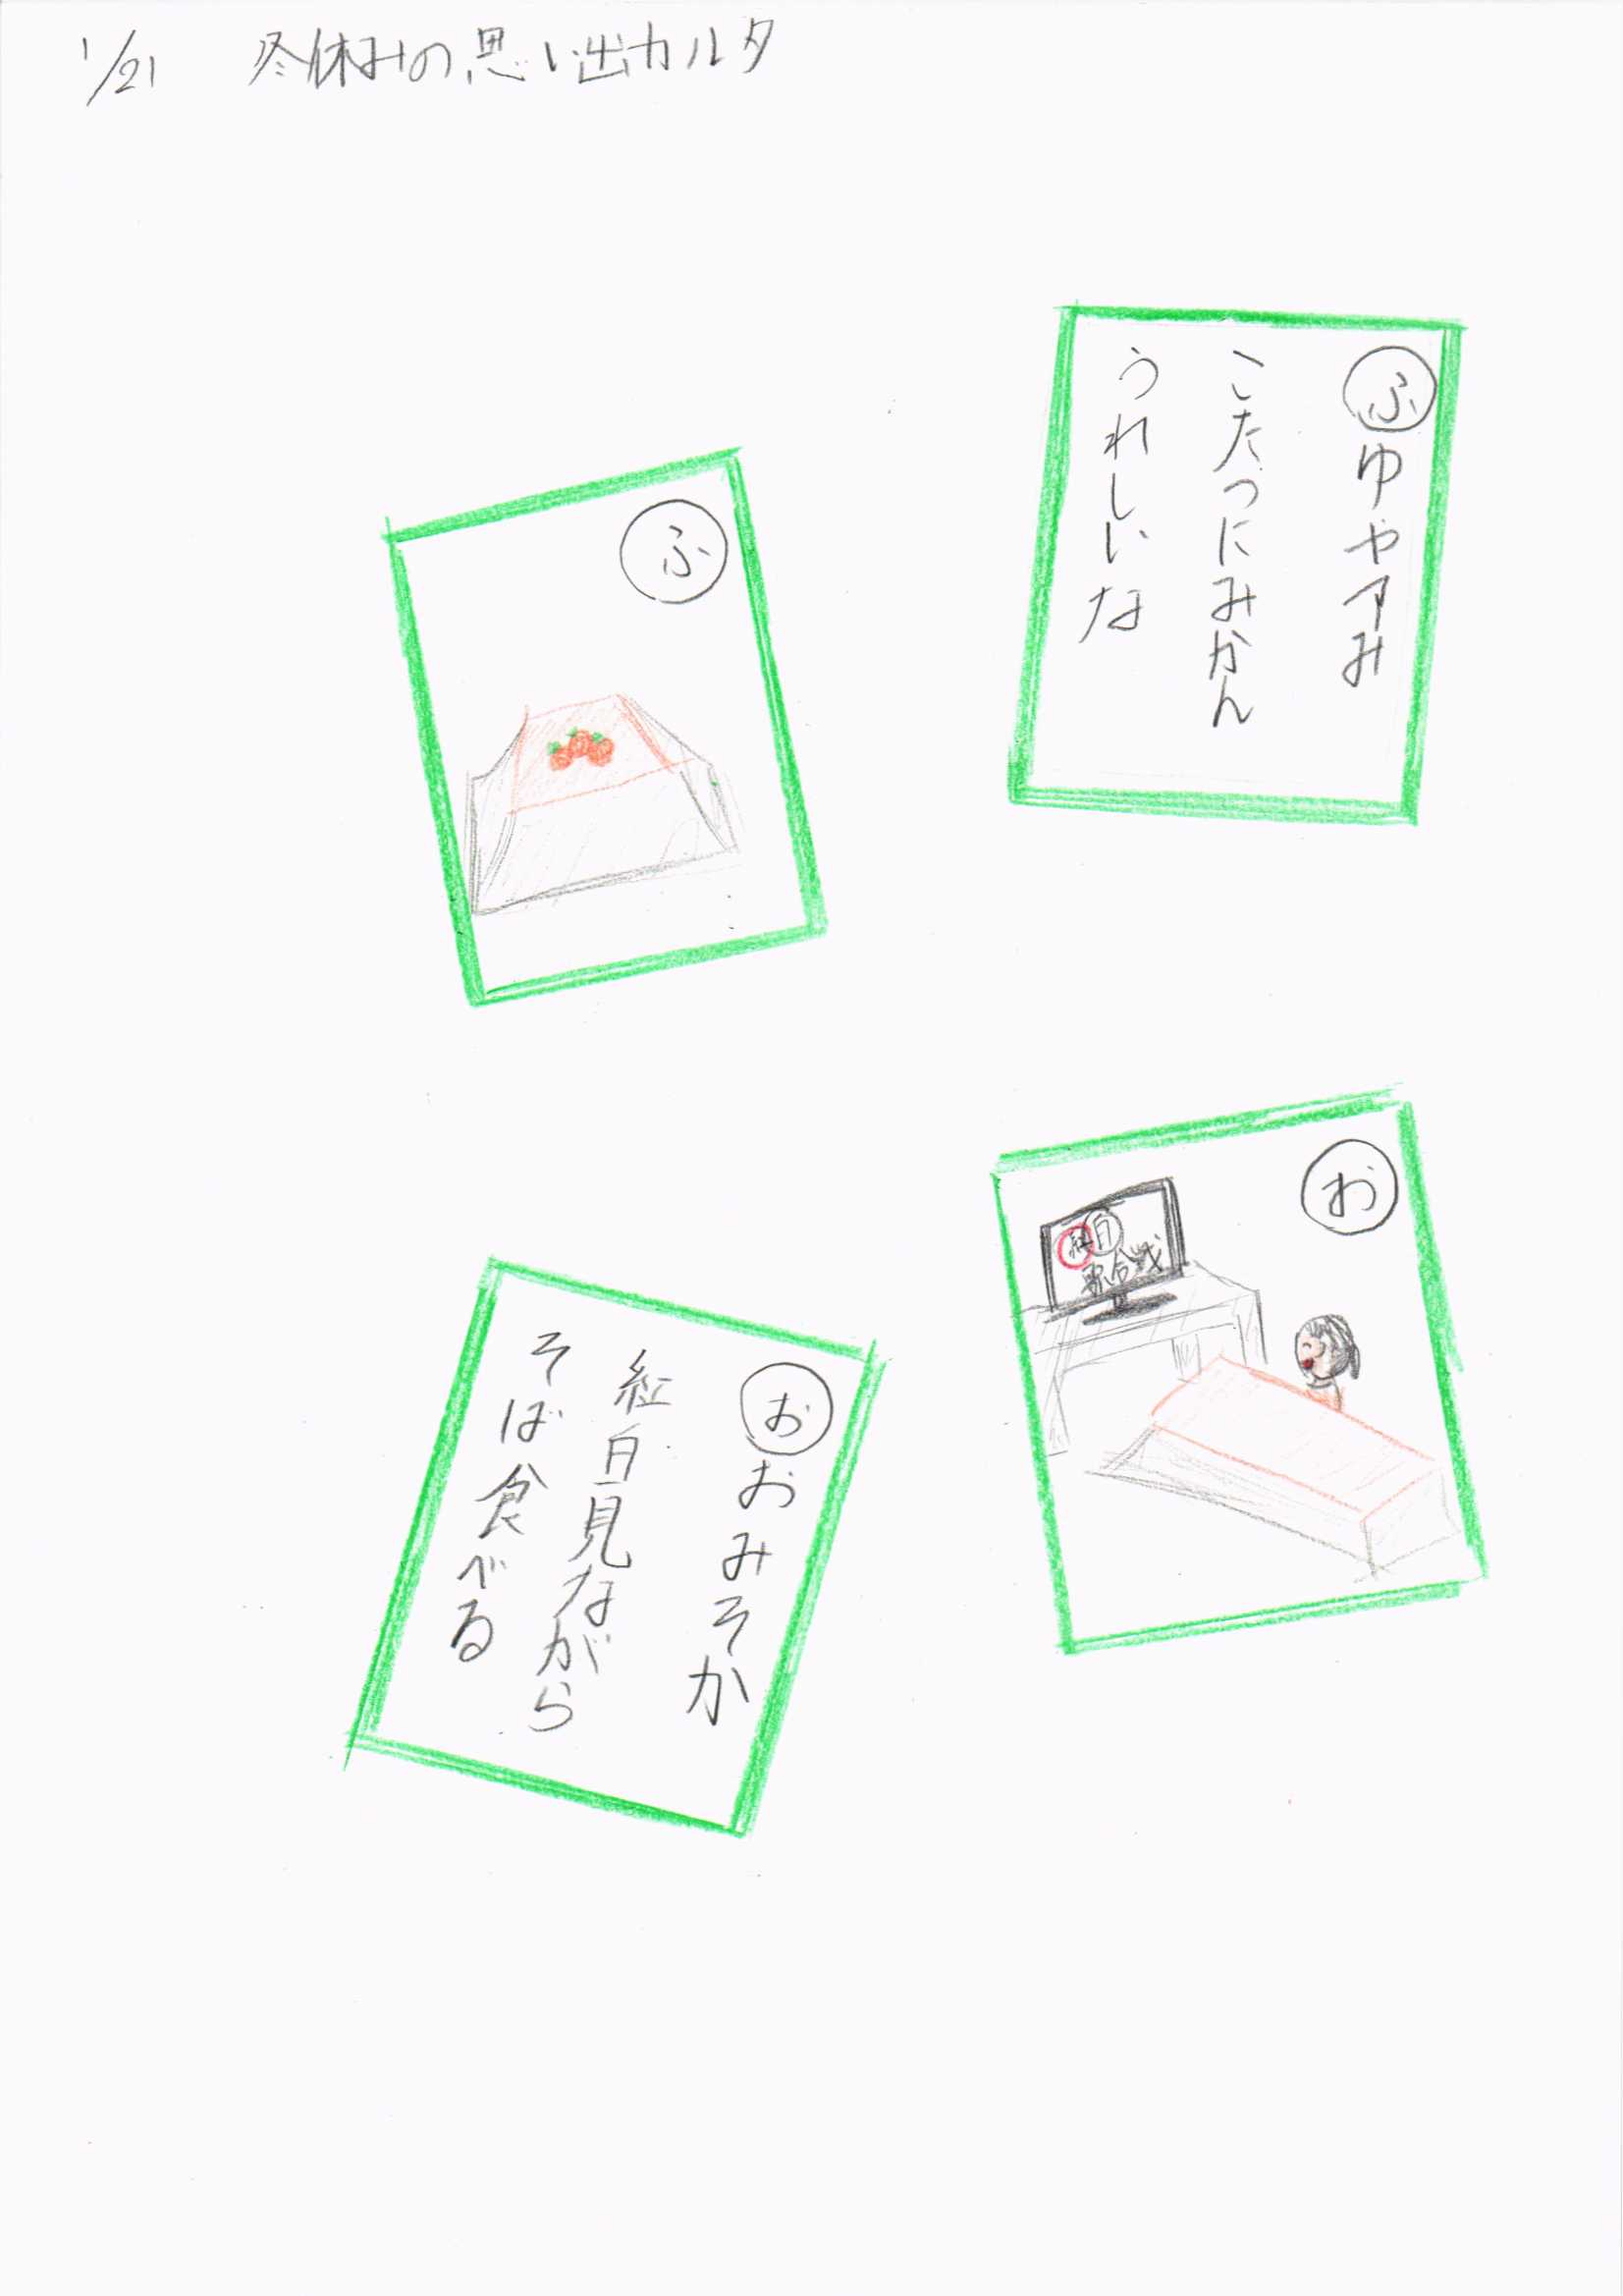 1/21 冬休みの思い出カルタ
ふゆやすみ
こたつにみかん
うれしいな
ふ
お
紅白
歌合戦
おおみそか
紅白見ながら
そば食べる